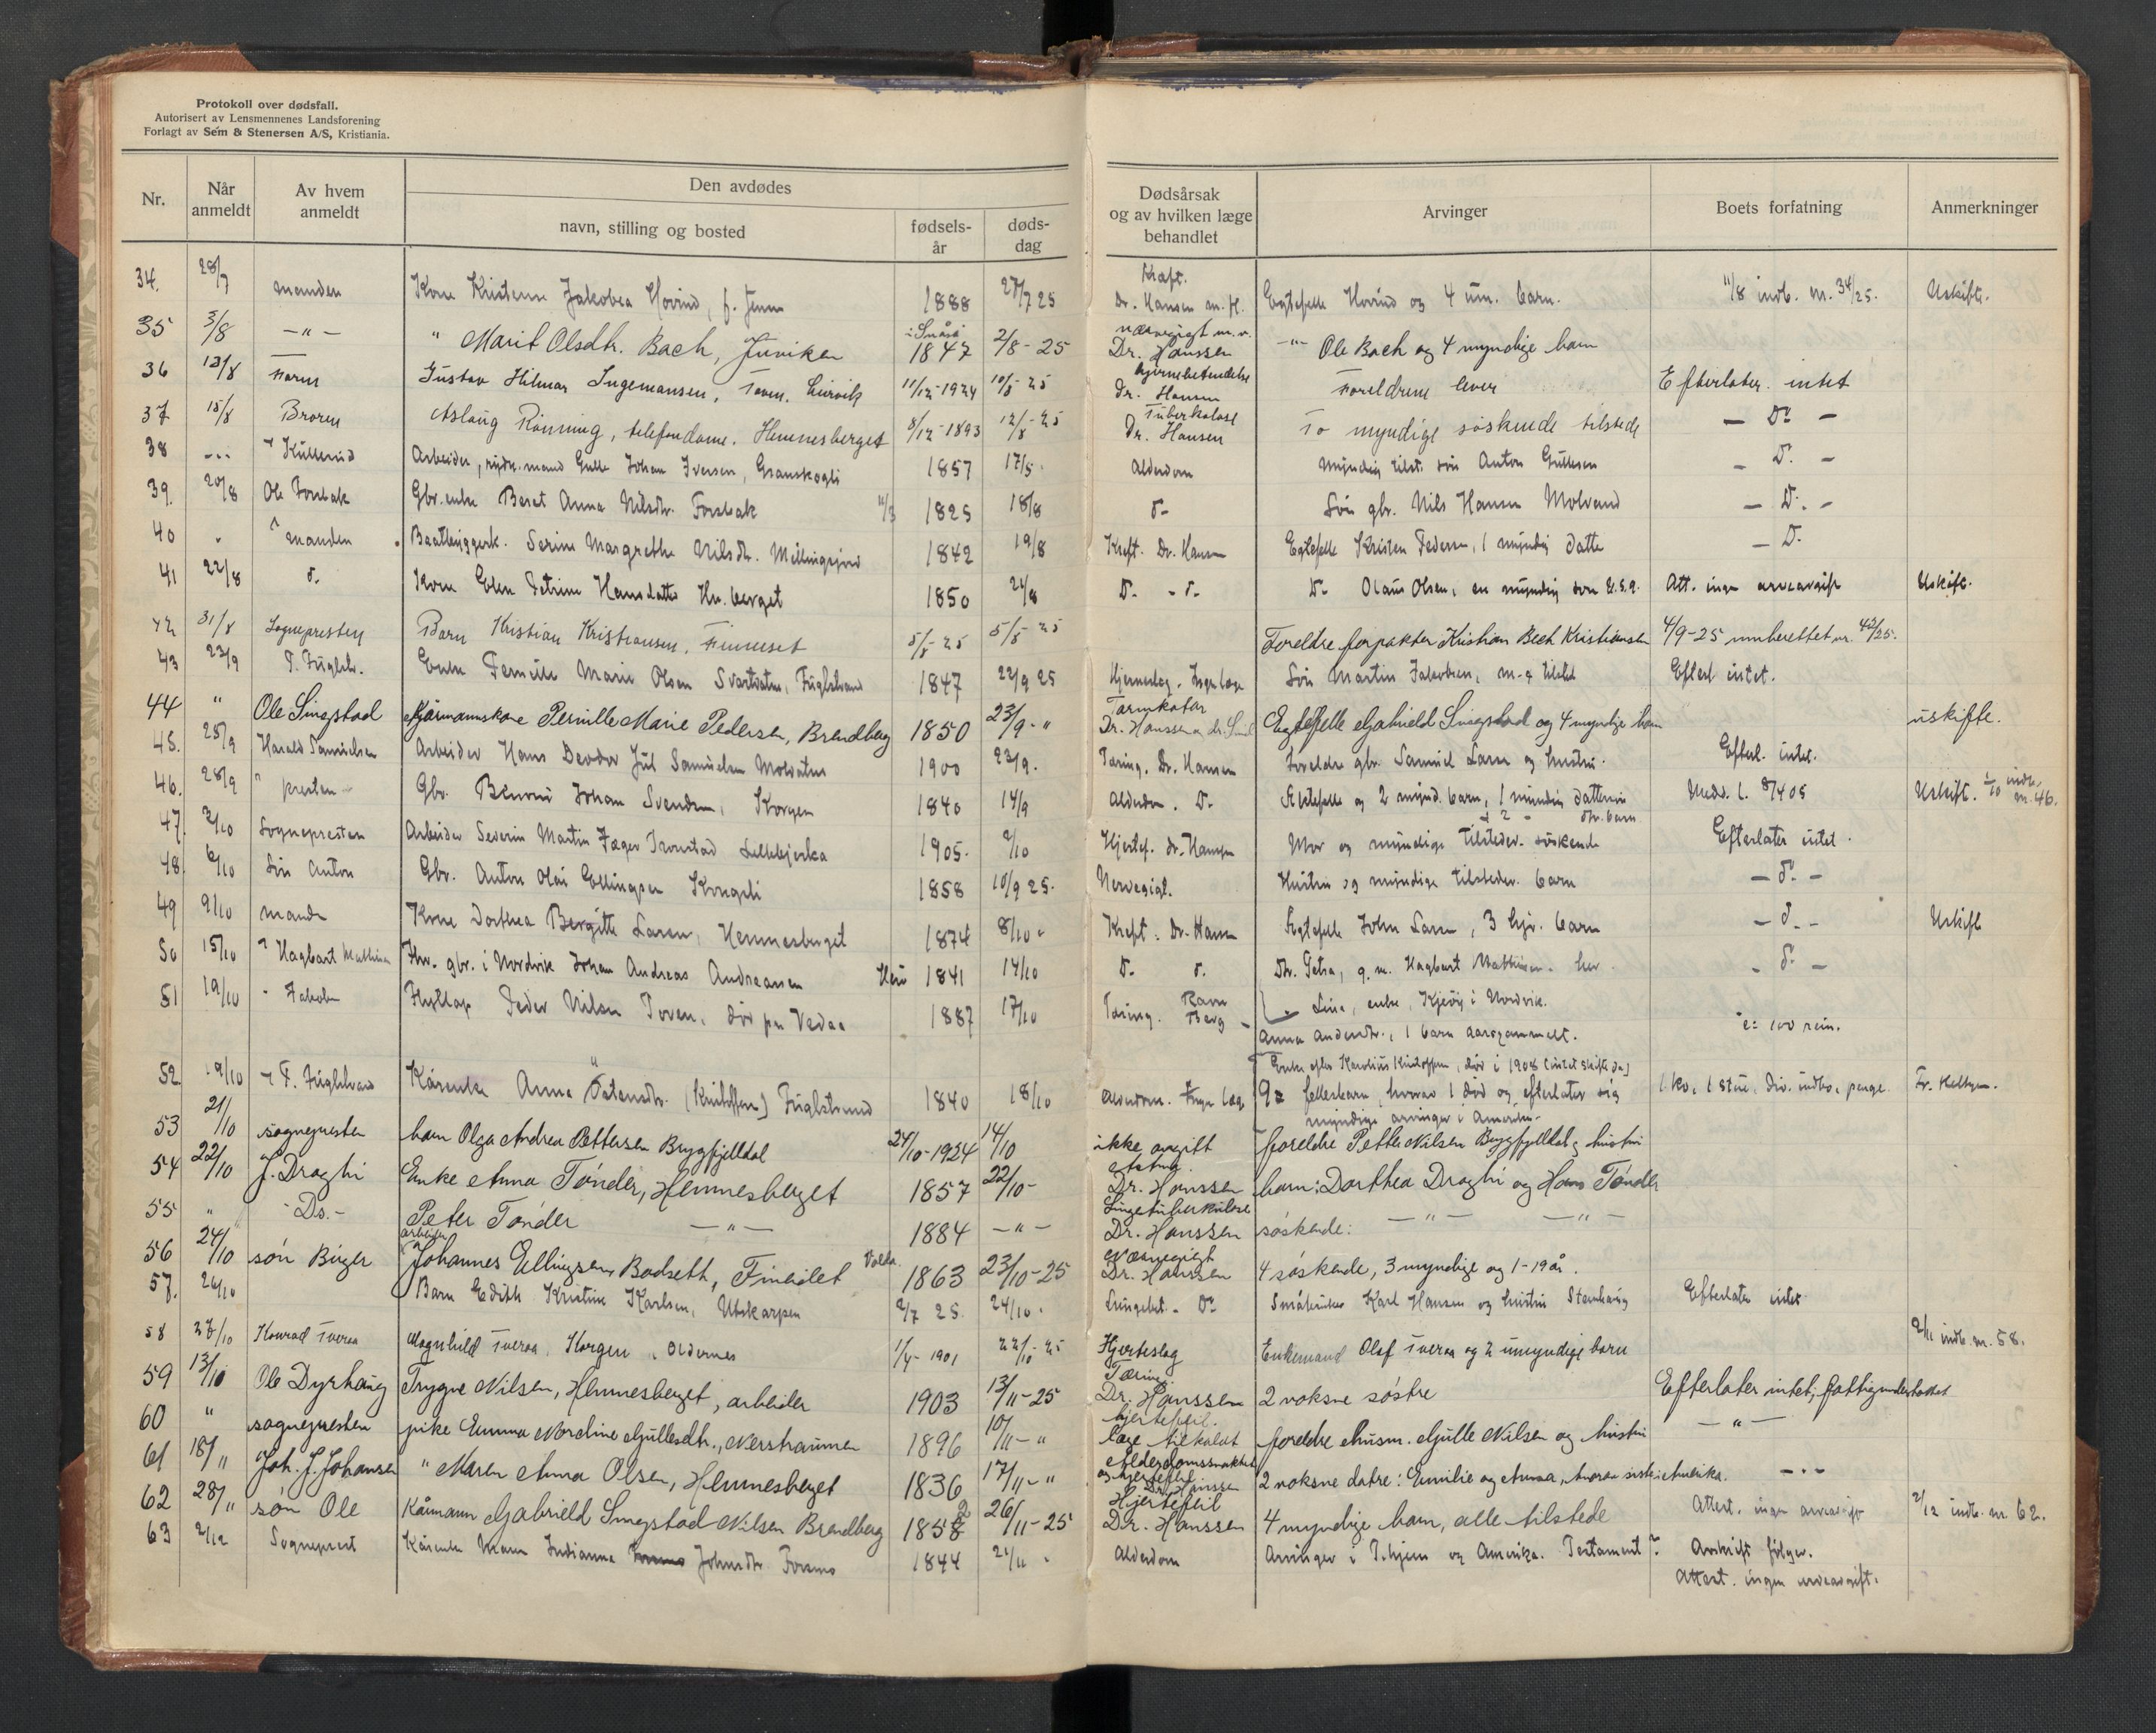 Protokoll over dødsfall.
Autorisert av Lensmennenes Landsforening
Forlagt av Sem & Stenersen A/S, Kristiania.
Nr. Når anmeldt Av hvem anmeldt Den avdødes navn, stilling og bosted fødsels-år døds-dag Dødsårsak og av hvilken læge behandlet Arvinger Boets forfatning Anmerkninger
34. 28/7 manden Kone Jakobea Hovind, f. 1888 27/7 25 Kræft. Dr. Hansen Egtefelle Hovind og 4 um. barn. 11/8 indb. nr. 34/25. Uskifte.
35 3/8 -"- " Marit Olsdtr. Bach, Juviken 1847 2/8-25 Dr. Hanssen -"- Ole Bach og 4 myndige barn
36 12/8 Faren Gustav Hilmar Ingemansen, 11/12-1924 10/8-25 Hjernebetendelse Dr. Hansen Foreldrene lever Efterlater intet
37 15/8 Broren Aslaug Rönning, telefondame. Hemnesberget 8/12-1893 12/8-25 Tuberkolose Dr. Hansen To myndige söskende tilstede - Do -
38 -"- Kullerud Arbeider, Gulle Johan Iversen, Granskogli 1857 17/5. Alderdom myndig tilst. sön Anton Gullesen - Do. -
39. 20/8 Ole Forsbak Gbr.enke Beret Anna Nilsdtr. Forsbak 11/3 1825 18/8 do- Sön gbr. Nils Hansen Molvand - Do. -
40 " manden Baatbyggerk. Serine Margrethe Nilsdtr. 1842 19/8 Kreft. Dr. Hansen Egtefelle Kristen Pedersen, 1 myndig datter - Do.
41 22/8 do. Kone Elen Petrine Hansdatter Hn.berget 1850 21/8 Do. - do- Do- Olaus Olsen, en myndig sön Att. ingen arveavgift Uskifte.
42 31/8 Sognepresten Barn Kristian Kristiansen, Finneset 5/8-25 5/8-25 Foreldre forpakter Kristian Bech Kristiansen 4/9-25 innberettet nr. 42/25.
43 23/9 P. Fuglstr. Enke Pernille Marie Olsen Svartvatn, Fuglstrand 1847 22/9 25 Hjerneslag. Ingen læge Sön Martin Jakobsen, Efterl. intet.
44 " Ole Singstad Kårmannskone Pernille Marie Pedersen, Brendberg 1850 23/9-" Tarmkatar Dr. Hanssen Egtefelle Gabrield Singstad og 4 myndige barn uskifte.
45. 25/9 Harald Samuelsen Arbeider Hans Deodor Jul Samuelsen Molvatn 1900 23/9. Tæring. Dr. Hansen Foreldre gbr. Samuel Larsen og hustru. Efterl. intet.
46. 28/9 " presten Gbr. Benoni Johan Svendsen, Korgen 1840 14/9 Alderdom. Do. Egtefelle og 2 mynd. barn, 1 myndig Uskift. 1/10 indb. nr. 46.
47. 2/10 Sognepresten Arbeider Severin Martin Jæger Tronstad 1905. 2/10 Hjertef. dr. Hansen Mor og myndige tilsteder. söskende Efterlater intet.
48. 6/10 Sön Anton Gbr. Anton Olai Ellingsen Krongeli 1858 10/9 25. Nervegigt. Hustru og myndige tilsteder. barn - do. -
49 9/10 manden Kone Dorthea Bergitte Larsen, Hemnesberget 1874 8/10 " Kreft. Dr. Hansen Egtefelle John Larsen, 3 hjv. barn - do. - Uskifte
50 15/10 " Hagbart Mathisen Fhv. gbr. i Nordvik Johan Andreas Andreassen 1841 14/10 do. do. Dtr. Petra, g. m. Hagbart Mathisen. her. - do. -
51 19/10 - Jakob Flyttlap Peder Nilsen Toven, död paa Vedaa 1887 17/10 Tæring. " Lina, enke, i Nordvik.
Anna Andersdtr., 1 barn aarsgammelt. ca. 100 rein.
52 19/10 P. Fuglstrand Kårenke Anna Östensdtr. (Kristoffersen) Fuglstrand 1840 18/10 Alderdom. Ingen læge Enke efter Karolius Kristoffersen, död i 1908
9 fellesbarn, hvorav 1 död og efterlater sig myndige arvinger i Amerika. 1 ko, 1 stue, div. indbo, penge.
53 21/10 sognepresten barn Olga Andrea Pettersen Brygfjelldal 24/10-1924 14/10 ikke avgitt foreldre Petter Nilsen Brygfjelldal og hustru
54 22/10 J. Draghi Enke Anna Tönder, Hemnesberget 1857 22/10- Dr. Hanssen barn: Dorthea Draghi og Hans Tönder
55 " - Do. - Peter Tönder -"- 1884 -"- Lungetuberkulose Dr. Hanssen söskende: -"- -"-
56 24/10 sön Birger arbeider Johannes Ellingsen Bodsett, Fineidet 1863 23/10-25 Nervegigt Dr. Hanssen 4 söskende, 3 myndige og 1 - 19 år.
57. 26/10 Barn Edith Kristine Karlsen, Utskarpen 2/7 25. 24/10. Lungebet. Do. Småbruker Karl Hansen og hustru Stenhaug Efterlater intet
58 27/10 Konrad Tveraa Magnhild Tveraa, Korgen, Oldernes 1/4-1901 22/10-25 Hjerteslag Enkemand Olaf Tveraa og 2 umyndige barn 9/11 indb. nr. 58.
59 13/10 Ole Dyrhaug Trygve Nilsen, Hemnesberget, arbeider 1903 13/11-25 Tæring. Dr. Hanssen 2 voksne söstre Efterlater intet, fattigunderstöttet
60 " sognepresten pike Emma Nordine Gullesdtr., Nerstraumen 1896 10/11-" hjertefeil. læge tilkaldt foreldre husm. Gulle Nilsen og hustru -"-
61 18/11 Joh. J. Johansen " Maren Anna Olsen, Hemnesberget 1836 17/11-" Alderdomssvakhet og hjertefeil Dr. Hanssen 2 voksne døtre: Emilie og Anna, hvorav siste i Amerika. -"-
62 28/11 sön Ole Kårmann Gabrield Singstad Nilsen Brendberg 1858 2 26/11-25 Hjertefeil Dr. Hanssen 4 myndige barn, alle tilstede Attest. ingen arveavgift 2/12 indb. nr. 62.
63 2/12 Sogneprest Kårenke Maren Indianna Johnsdtr. Forsmo 1844 21/11 " Alderdom Arvinger i T.hjem og Amerika. Testament? Avskrift følger.
Attest. ingen arveavgift.